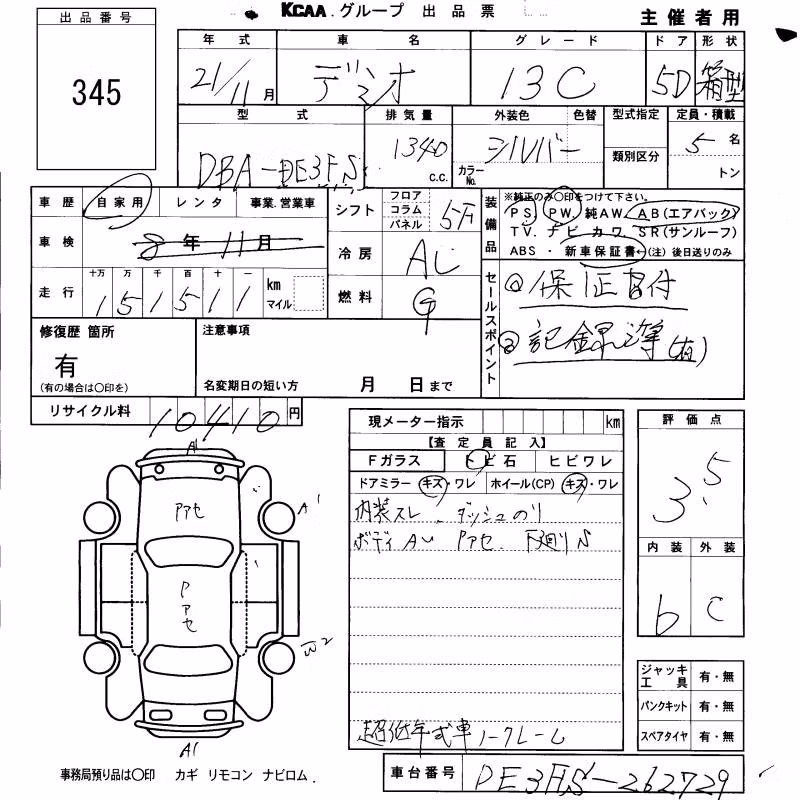 KCAA グループ 出品票
主催者用
出品番号
345
年式 車名 グレード ドア 形状
21/11月 デミオ 13C 5D 箱型
型式 排気量 外装色 色替 型式指定 定員・積載
DBA-DE3FS 1340 c.c. シルバー カラーNo. 類別区分 5名
トン
車歴 自家用 レンタ 事業・営業車
シフト フロア コラム パネル 5F
装備品 ※純正のみ○印をつけて下さい。
PS PW 純AW. AB(エアバック)
TV. ナビ カワ SR(サンルーフ)
ABS ・ 新車保証書←(注)後日送りのみ
車検 年 11月
冷房 AC
走行 十万 万 千 百 十 一
151511 km マイル
燃料 G
セールスポイント
① 保証書付
② 記録簿(有)
修復歴 箇所
有
(有の場合は○印を)
注意事項
名変期日の短い方 月 日まで
リサイクル料 10410円
現メーター指示 km
【査定員記入】
Fガラス トビ石 ヒビワレ
ドアミラー キズ・ワレ ホイール(CP) キズ・ワレ
内装スレ ダッシュのり
ボディ AU Pアセ
超低年式車ノークレーム
評価点
3.5
内装 外装
b C
ジャッキ工具 有・無
パンクキット 有・無
スペアタイヤ 有・無
A1
Pアセ
A1
Pアセ
W2
A1
事務局預り品は○印 カギ リモコン ナビロム.
車台番号 DE3FS-262729